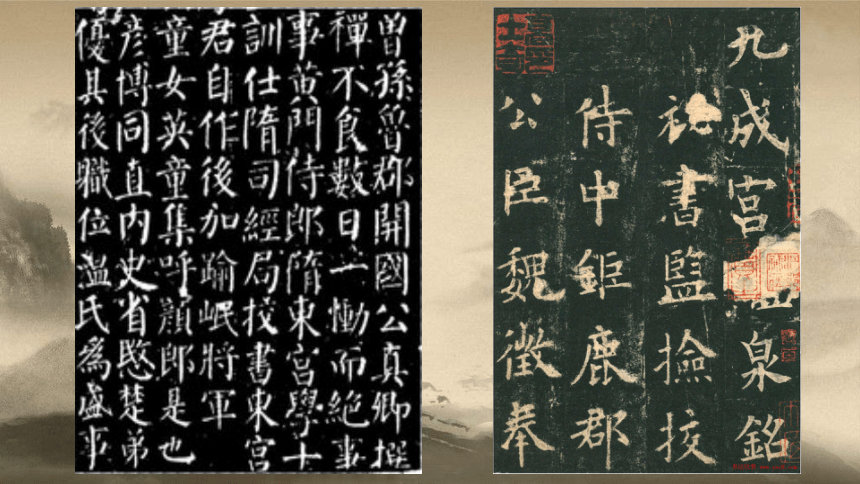 曾孫魯郡開國公真卿撰
禪不食數日一慟而絕事
事黃門侍郎隋東宮學士
訓仕隋司經局挍書東宮
君自作後加踰岷將軍
童女英童集呼顏郎是也
彦博同直内史省愍楚弟
優其後職位温氏為盛事
九成宮泉銘
祕書監撿挍
侍中鉅鹿郡
公臣魏徵奉